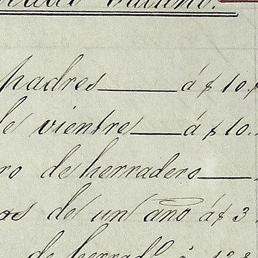 padres á $ 10.
de vientre á $ 10.
ro de herradero
os de un año á $ 3
de herrad.º á